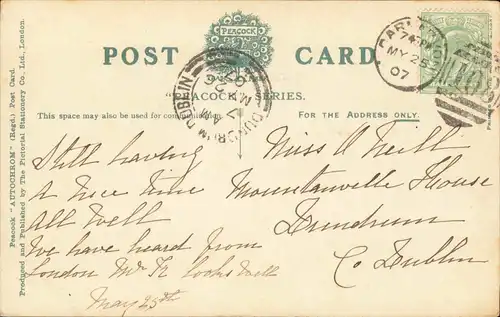 PEACOCK
POST CARD.
"PEACOCK" SERIES.
This space may also be used for communication.
FOR THE ADDRESS ONLY.
Peacock "AUTOCHROM" (Regd.) Post Card.
Produced and Published by The Pictorial Stationery Co. Ltd., London.
MY 25
07
DUNDRUM DUBLIN
Still having
a nice time
All well
We have heard from
London Mr looks well
May 25th
Miss O'Neill
Mountanville House
Dundrum
Co Dublin